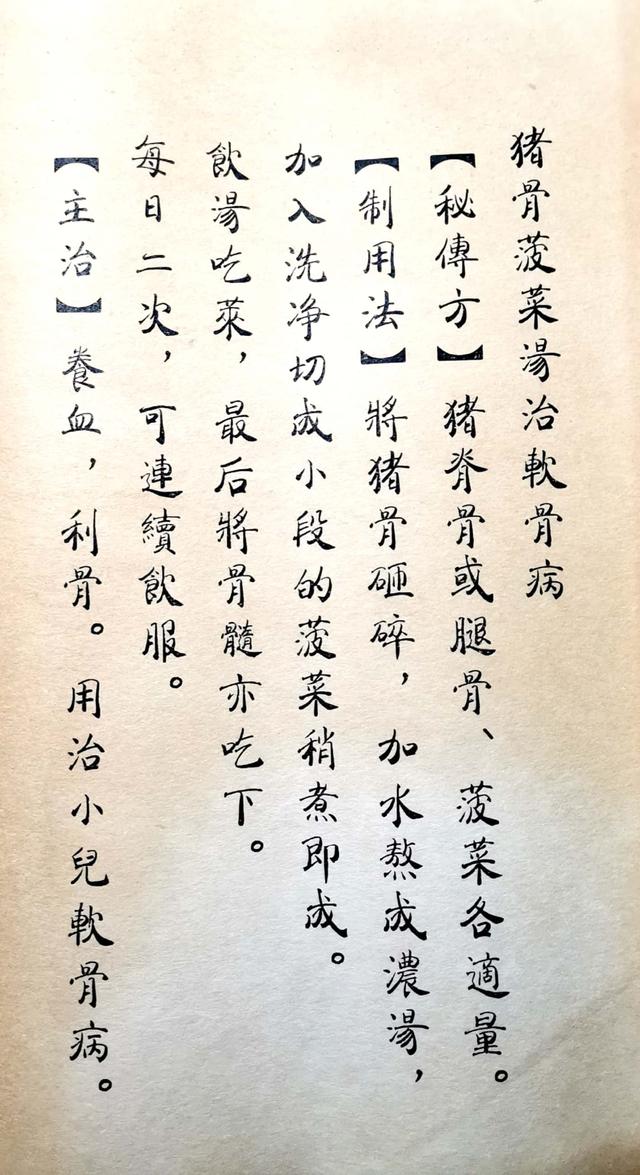 猪骨菠菜湯治軟骨病
【秘傳方】猪脊骨或腿骨、菠菜各適量。
【制用法】將猪骨砸碎，加水熬成濃湯，
加入洗净切成小段的菠菜稍煮即成。
飲湯吃菜，最后將骨髓亦吃下。
每日二次，可連續飲服。
【主治】養血，利骨。用治小兒軟骨病。